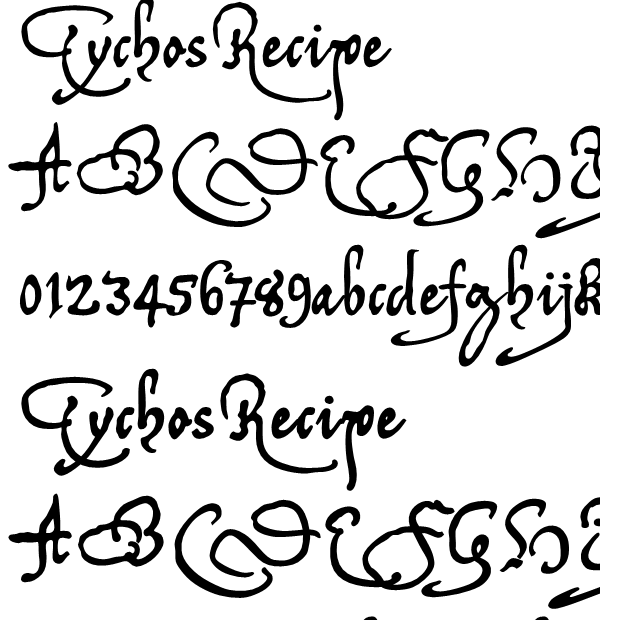 Tychos Recipe
ABCDEFGH
0123456789abcdefghijk
Tychos Recipe
ABCDEFGH